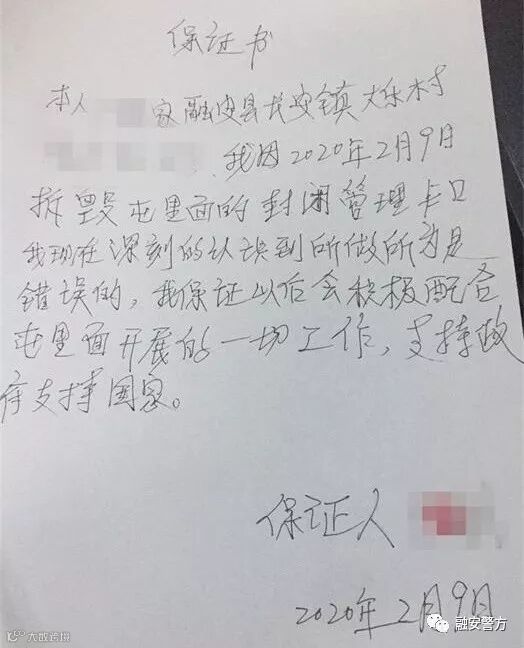 保证书
本人 家融安县长安镇大乐村
我因2020年2月9日
拆毁屯里面的封闭管理卡口
我现在深刻的认识到所做所为是
错误的，我保证以后会积极配合
屯里面开展的一切工作，支持政
府支持国家。
保证人
2020年2月9日
融安警方
大数跨境